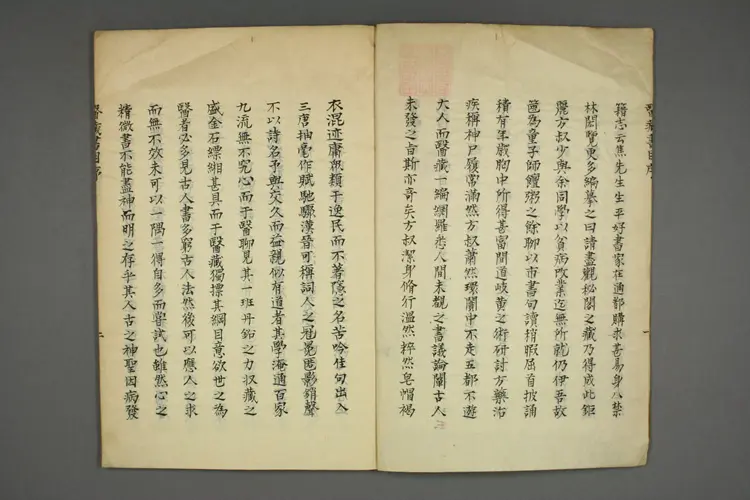 醫藏書目序
籍志云焦先生生平好書家在通都購求甚易身入禁
林閱覽更多編摹之曰請盡觀秘閣之藏乃得成此鉅
麗方叔少與余同學以貧病改業迄無所就仍伊吾故
篋為童子師饘粥之餘聊以市書句讀指暇屈首披誦
積有年歲胸中所得甚富間道岐黃之術研討方藥治
疾稱神戶屨常滿然方叔蕭然環闠中不走五都不遊
大人而醫藏一編網羅悉人間未覩之書議論闡古人
未發之㫖斯亦奇矣方叔潔身脩行溫然粹然皂帽褐
衣混迹庸衆類于逸民而不著隱之名苦吟佳句出入
三唐抽毫作賦馳驟漢晉可稱詞人之冠冕匿影銷聲
不以詩名予與交久而益親似有道者其學淹通百家
九流無不究心而于醫聊見其一班丹鉛之力収藏之
盛金石縹緗甚具而于醫藏獨摽其綱目意欲世之為
醫者必多見古人書多窮古人法然後可以應人之求
而無不效未可以一隅一得自多而嘗試也雖然心之
精微書不能盡神而明之存乎其人古之神聖因病發
醫藏書目序
二